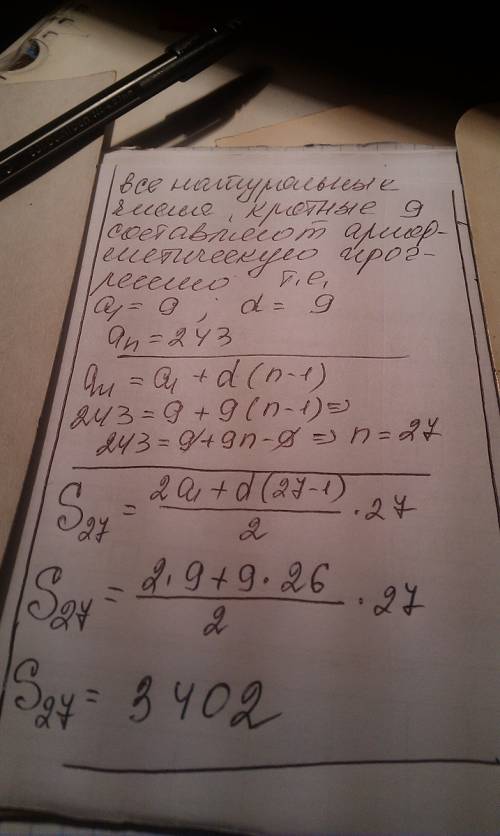 все натуральные
числа, кратные 9
составляют ариф-
метическую прог-
рессию т.е.
a₁ = 9 ; d = 9
aₙ = 243
aₙ = a₁ + d(n-1)
243 = 9 + 9(n-1) ⇒
243 = 9 + 9n - 9 ⇒ n = 27
S₂₇ = (2a₁ + d(27-1))/2 · 27
S₂₇ = (2·9 + 9·26)/2 · 27
S₂₇ = 3402